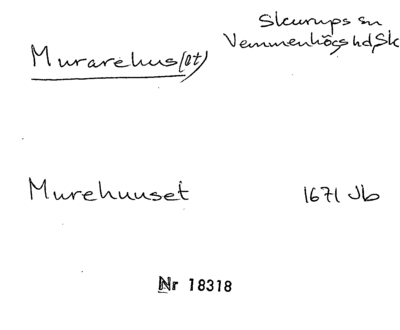 Skurups sn
Vemmenhögs hd, Sk
Murarehus(et)
Murehuuset 1671 Jb
Nr 18318